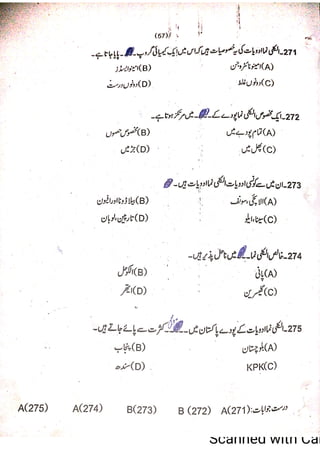 (57)
271۔ الکلی نما ادویات کی یہ خصوصیات ہیں کہ اس میں ایک کیمیائی گروپ۔ پایا جاتا ہے۔
(A) امینو نائٹروجن (B) امینو ایسڈز
(C) دونوں غلط (D) دونوں درست
272۔ ایک مخصوص الکلی نما پودے کے۔ میں مرتکز ہوتا ہے۔
(A) تمام پودے میں (B) مخصوص حصوں
(C) پھل میں (D) جڑ میں
273۔ ان میں سے کونسی ادویات الکلی نما ادویات ہیں۔
(A) الائچی، سونف (B) بیلاڈونا اور افیون
(C) سینا، ایلو (D) تارپین، لوبان
274۔ خالص الکلی نما۔ میں ناحل پذیر ہیں۔
(A) پانی (B) الکوحل
(C) گلیسرین (D) ایتھر
275۔ الکلی نما ادویات کے پودے پاکستان میں۔ کثرت سے پائے جاتے ہیں۔
(A) بلوچستان (B) پنجاب
(C) KPK (D) سندھ
درست جوابات: A(271) B (272) B(273) A(274) A(275)
Scanned with Ca